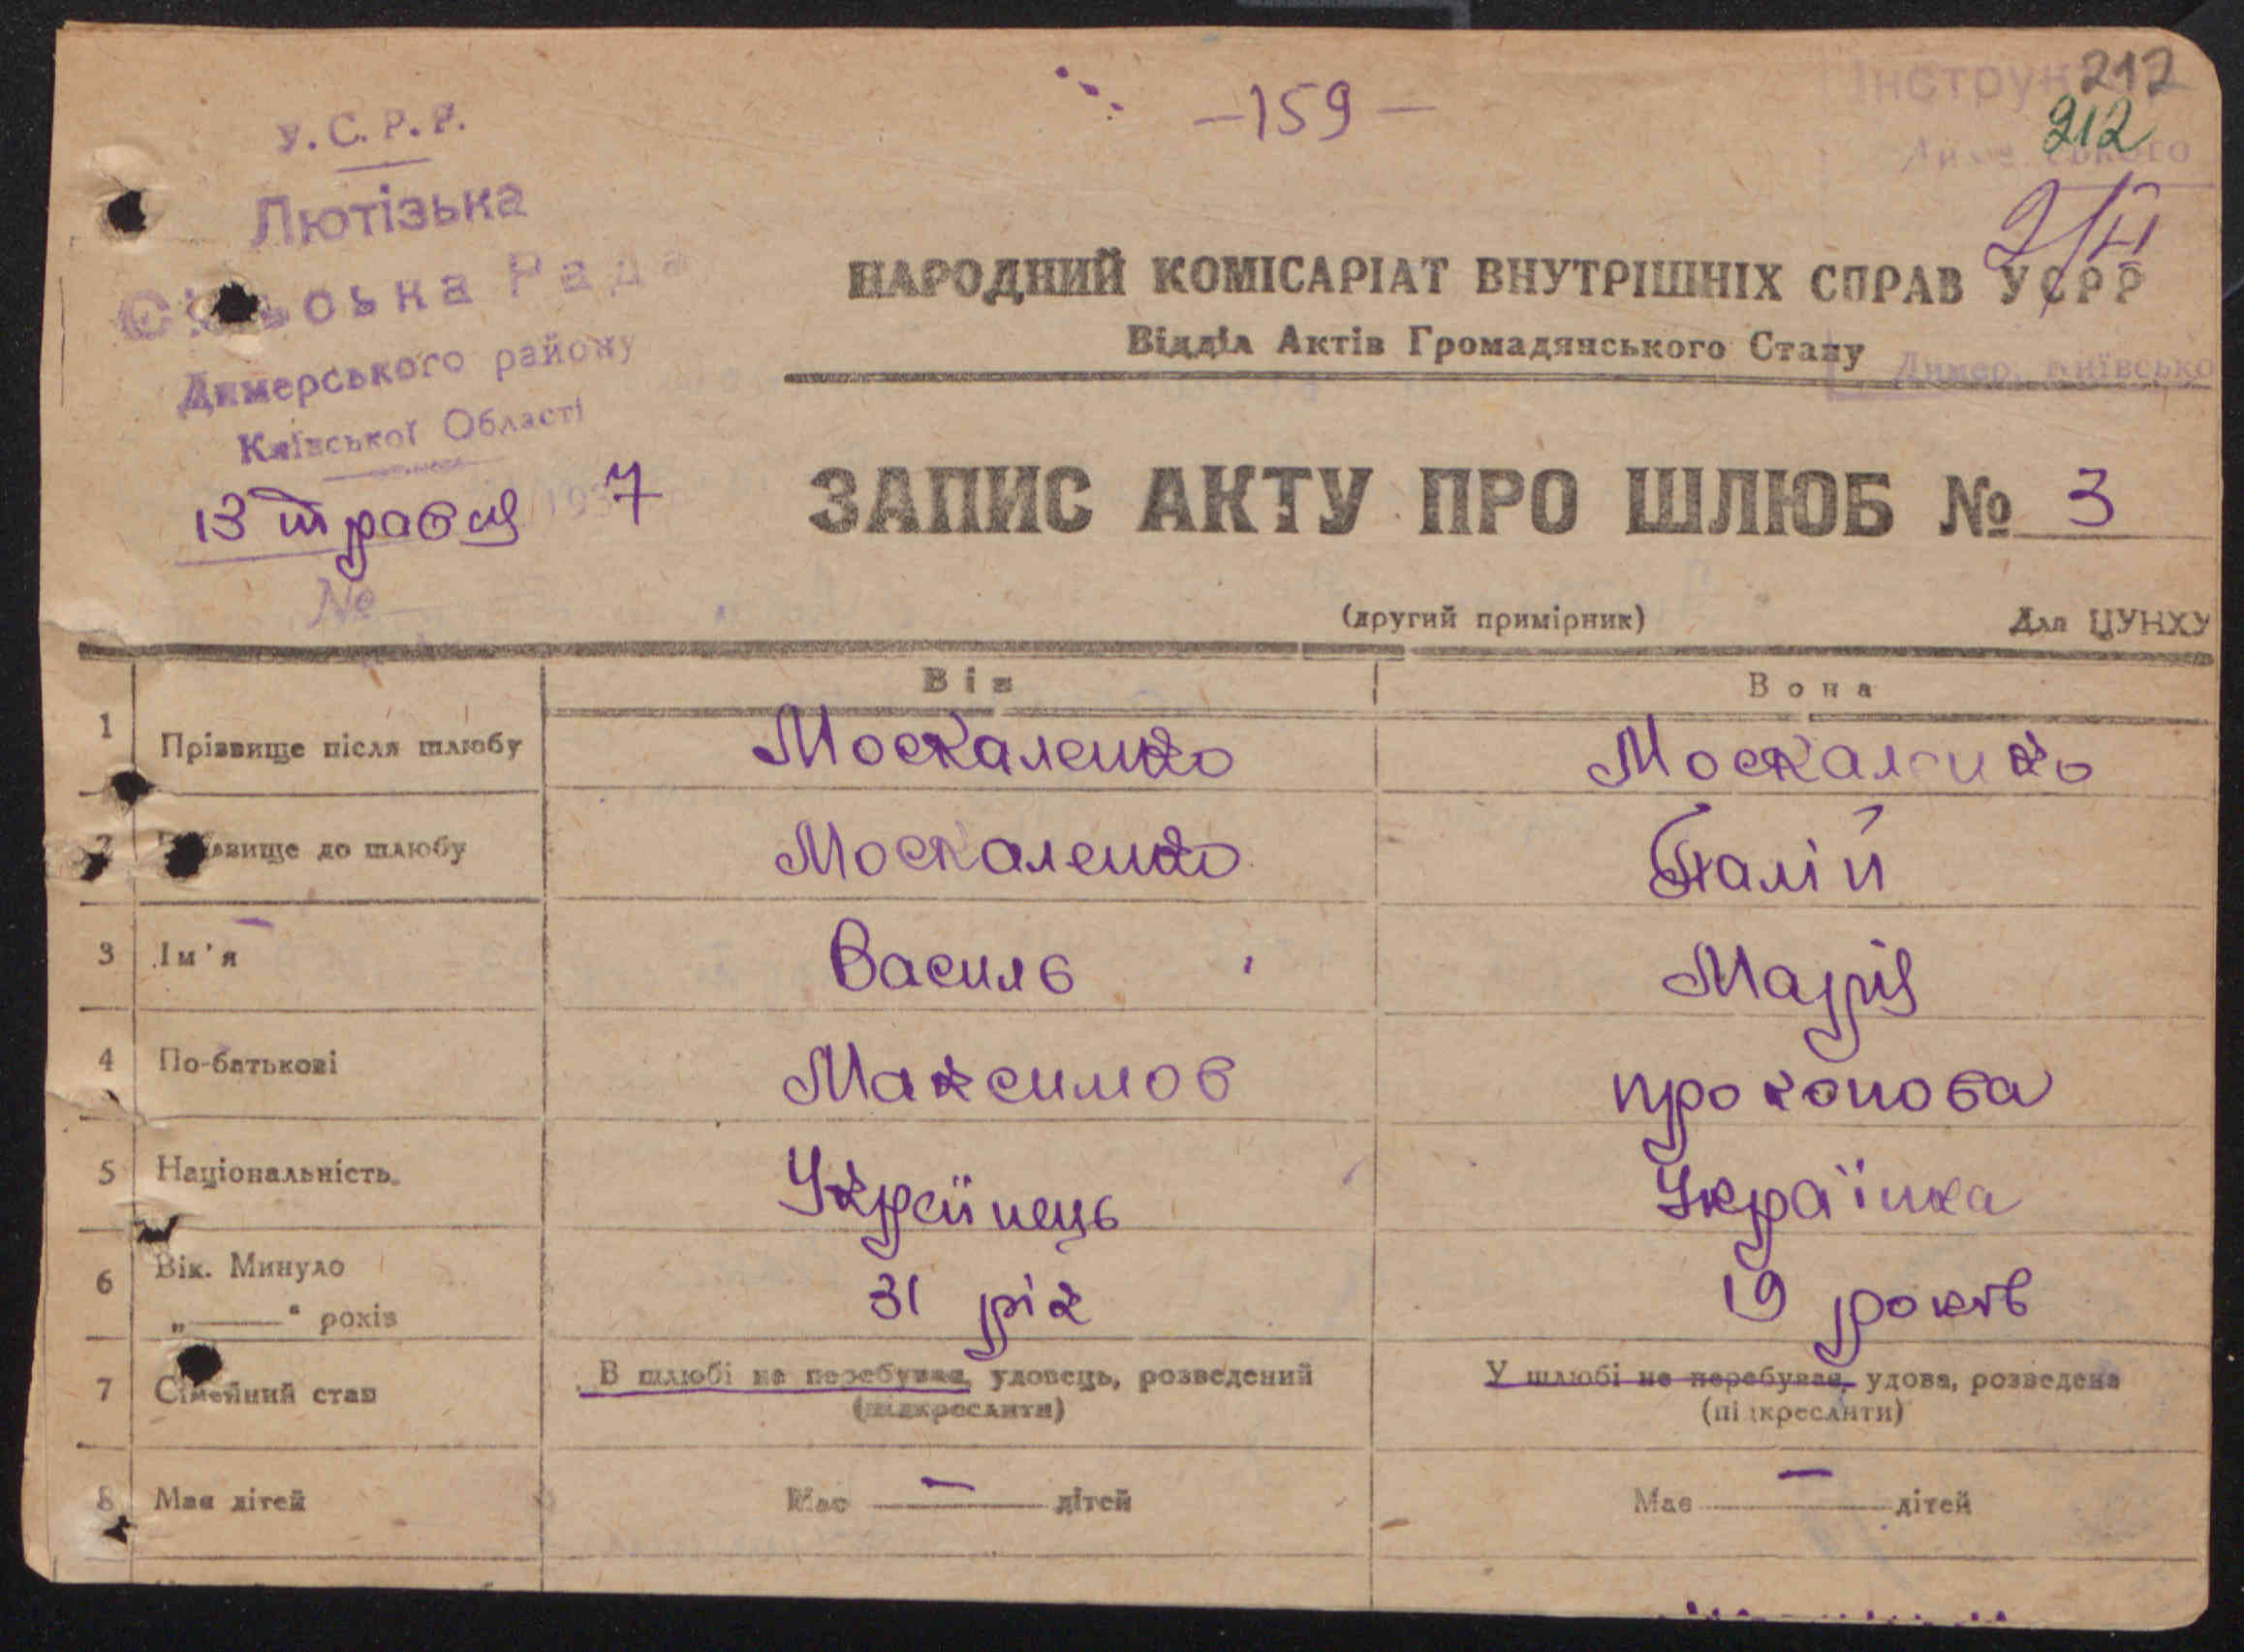 212
212
-159-
У.С.Р.Р.
Лютізька
Сільська Рада
Димерського району
Київської Області
13 травця 1937
№
Димер, Київсько
НАРОДНИЙ КОМІСАРІАТ ВНУТРІШНІХ СПРАВ УСРР
Відділ Актів Громадянського Стану
ЗАПИС АКТУ ПРО ШЛЮБ № 3
(другий примірник) Для ЦУНХУ
Він Вона
1 Прізвище після шлюбу Москаленко Москаленко
2 Прізвище до шлюбу Москаленко Палій
3 Ім'я Василь Марія
4 По-батькові Максимов прокопова
5 Національність Українець Українка
6 Вік. Минуло
„——“ років 31 рік 19 років
7 Сімейний стан В шлюбі не перебував, удовець, розведений У шлюбі не перебувая, удова, розведена
(підкреслити) (підкреслити)
8 Має дітей Має — дітей Має — дітей